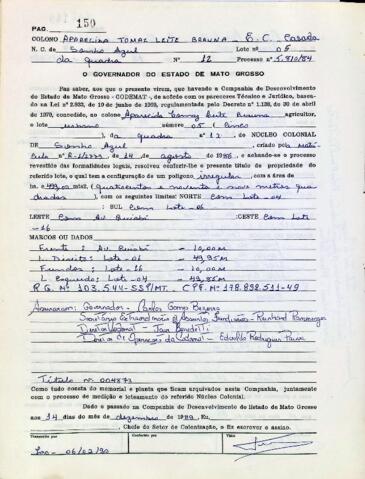 PAG. 150
COLONO Aparecida Tomaz Leite Brauna - E.C. Casada
N. C. de Sonho Azul Lote nº 05
da quadra Nº 12 Processo nº 5.810/84
O GOVERNADOR DO ESTADO DE MATO GROSSO
Faz saber, aos que o presente virem, que havendo a Companhia de Desenvolvimento
do Estado de Mato Grosso - CODEMAT -, de acôrdo com os pareceres Técnico e Jurídico, basea-
do na Lei nº 2.932, de 10 de junho de 1969, regulamentada pelo Decreto nº 1.138, de 30 de abril
de 1970, concedido, ao colono Aparecida Tomaz Leite Brauna agricultor,
o lote urbano número 05 (cinco
), da quadra nº 12, do NÚCLEO COLONIAL
DE Sonho Azul, criado pela Matrí
cula de 14 de agosto de 1986, e achando-se o processo
revestido das formalidades legais, resolveu conferir-lhe o presente título de propriedade
do referido lote, o qual tem a configuração de um polígono irregular, com a área de
ha. e 499,00 mts2. (Quatrocentos e noventa e nove metros qua
drados), com os seguintes limites: NORTE Com Lote-04
; SUL Com Lote-06
LESTE Com Av. Cuiabá ; OESTE Com Lote
-16
MARCOS OU DADOS
Frente: Av. Cuiabá - 10,00 M
L. Direito: Lote-06 - 49,95 M
Fundos: Lote-16 - 10,00 M
L. Esquerdo: Lote-04 - 49,85 M
R.G. Nº 103.544-SSP/MT. CPF. Nº 178.898.511-49
Assinaram: Governador - Carlos Gomes Bezerra
Diretor Colonial - Jair Benedetti
Diretor de Operações da Colonial - Edvaldo Rodrigues Paiva
Título nº 004873
Como tudo consta do memorial e planta que ficam arquivados nesta Companhia, juntamente
com o processo de medição e loteamento do referido Núcleo Colonial.
Dado e passado na Companhia de Desenvolvimento do Estado de Mato Grosso
aos 14 dias do mês de dezembro de 1989. Eu,
, Chefe do Setor de Colonização, o fiz escrever e assino.
Transcrito por Conferido por Visto
06/02/90